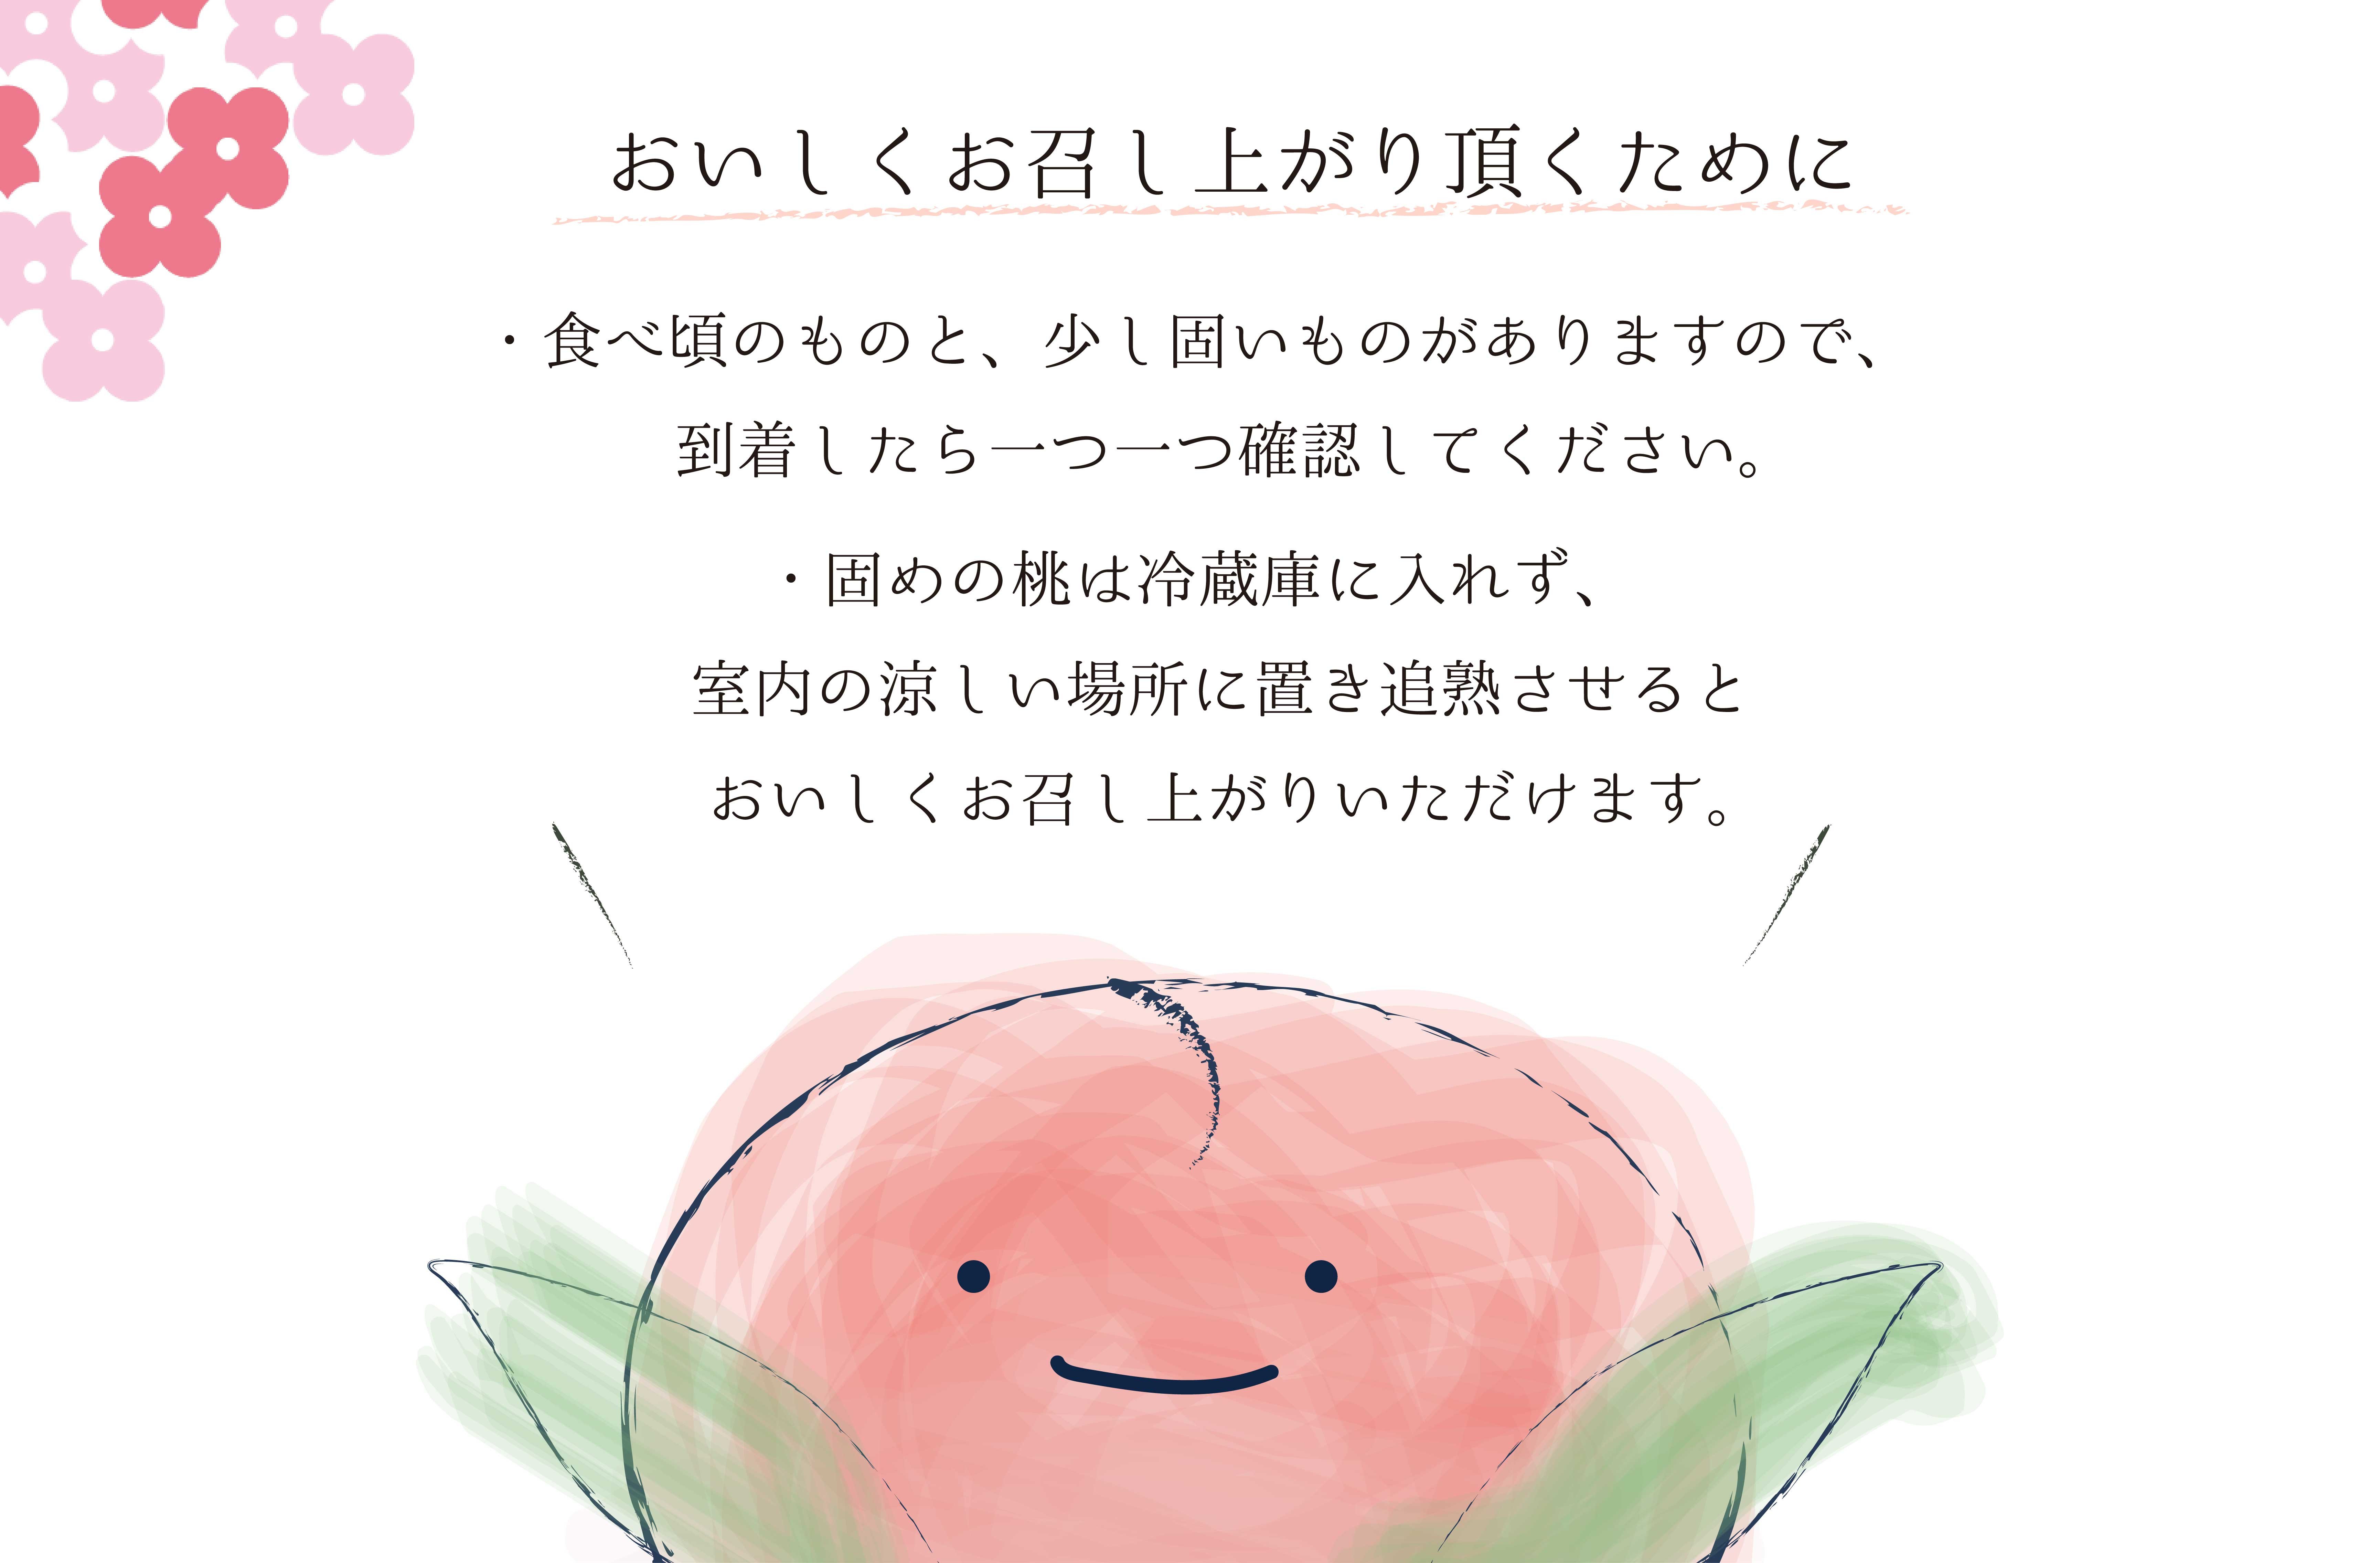 おいしくお召し上がり頂くために
・食べ頃のものと、少し固いものがありますので、
到着したら一つ一つ確認してください。
・固めの桃は冷蔵庫に入れず、
室内の涼しい場所に置き追熟させると
おいしくお召し上がりいただけます。